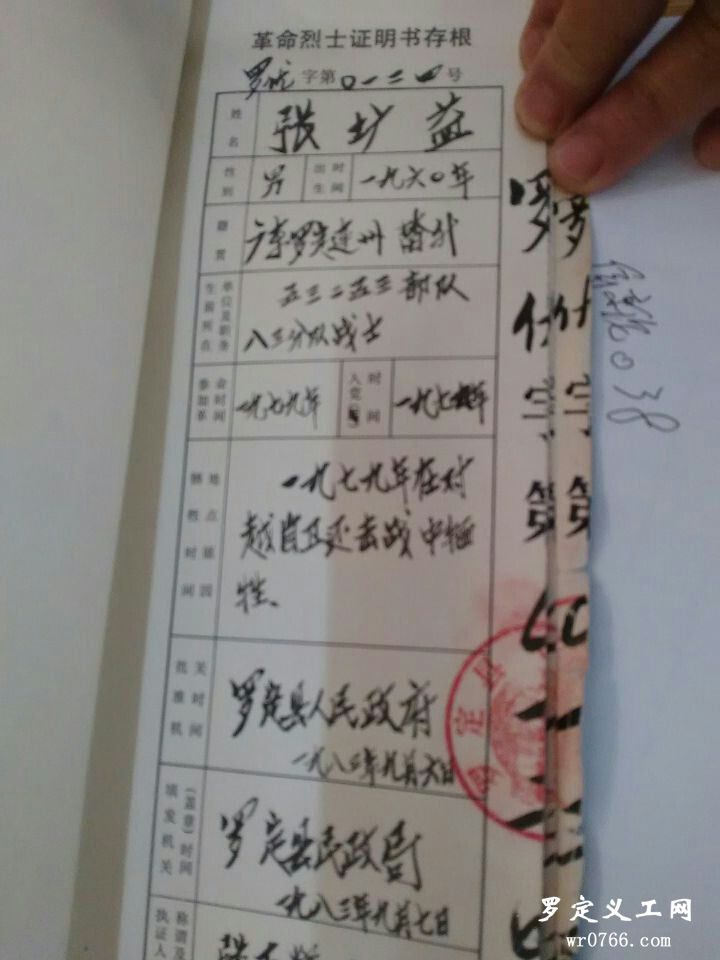 革命烈士证明书存根
罗优 字第〇一三四号
姓名 张扩益
性别 男 出生时间 一九六〇年
籍贯 广东罗定连州
生前所在单位及职务 五三二五三部队
八三分队战士
参加革命时间 一九七九年 入党时间
牺牲时间地点原因 一九七九年在对
越自卫还击战中牺
牲、
批准机关时间 罗定县人民政府
一九八三年九月六日
填发机关(盖章)时间 罗定县民政局
一九八三年九月七日
执证人 称谓及
字第
罗定义工网
wr0766.com